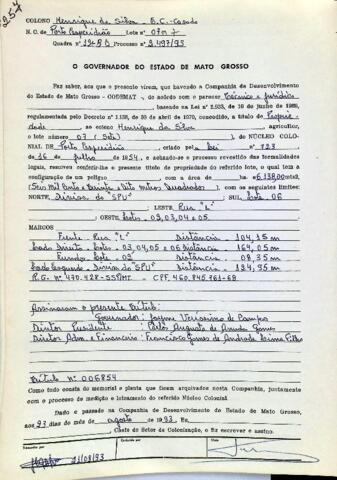 254
COLONO Henrique da Silva - B.C. - Casado
N. C. de Porto Esperidião Lote nº 07
Quadra nº Processo nº 3.497/93
O GOVERNADOR DO ESTADO DE MATO GROSSO
Faz saber, aos que o presente virem, que havendo a Companhia de Desenvolvimento
do Estado de Mato Grosso - CODEMAT -, de acordo com o parecer Técnico e Jurídico
baseado na Lei nº 2.923, de 16 de junho de
regulamentada pelo Decreto nº 1.138, de 30 de abril de 1970, concedido, a título de Proprie
dade ao colono Henrique da Silva agricultor,
o lote número 07 (sete) do NÚCLEO COLO-
NIAL DE Porto Esperidião criado pela Lei nº 723
de 16 de julho de 1954, e achando-se o processo revestido das formalidades
legais, resolveu conferir-lhe o presente título de propriedade do referido lote, o qual tem a
configuração de um polígono com a área de ha=6.138,00m2,
(Seis Mil Cento e Trinta e Oito Metros Quadrados) com os seguintes limites:
NORTE, divisas do "SPU" SUL, Lote 06
LESTE Rua "L"
OESTE, Lotes 02, 03, 04 e 05.
MARCOS
Frente - Rua "L" Distância 104,15 m
Lado Direito - Lotes 03, 04, 05 e 06 Distância 164,05 m
Fundo - Lote 02 Distância 08,35 m
Lado Esquerdo - Divisas do "SPU" Distância m
R.G. Nº 470.428-SSP/MT. - CPF. 460.845.761-68
Assinaram o presente título:
Governador: Jayme Veríssimo de Campos
Diretor Presidente: Pedro Augusto de Arruda Gomes
Diretor Adm. e Financeiro: Francisco Gomes de Andrade Lima Filho
Título nº 006854
Como tudo consta do memorial e planta que ficam arquivados nesta Companhia, juntamente
com o processo de medição e loteamento do referido Núcleo Colonial.
Dado e passado na Companhia de Desenvolvimento do Estado de Mato Grosso,
aos 23 dias do mês de agosto de 1993. Eu,
Chefe do Setor de Colonização, o fiz escrever e assino.
23/08/93